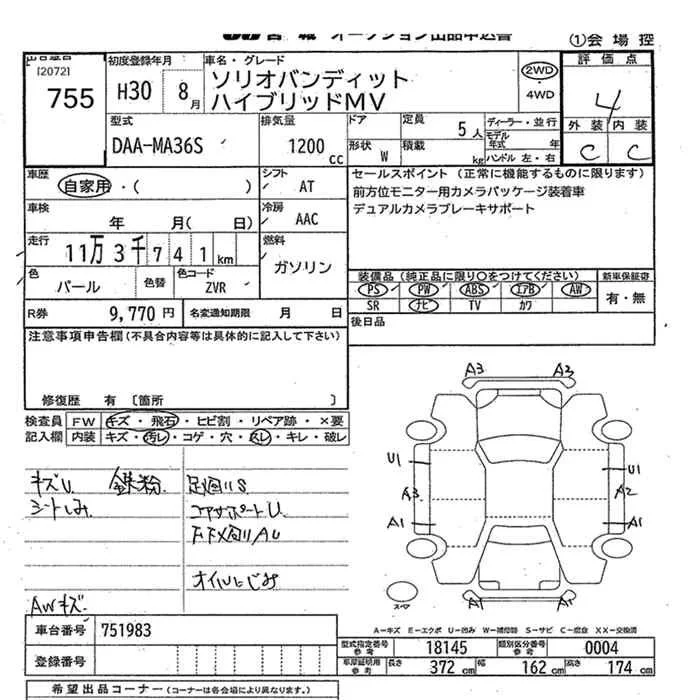 オークション出品申込書
①会場控
出品番号
[2072]
755
初度登録年月
H30 8月
車名・グレード
ソリオバンディット
ハイブリッドMV
2WD
・
4WD
評価点
4
外装 内装
C C
型式
DAA-MA36S
排気量
1200 cc
ドア
形状 W
定員 5人
積載 kg
ディーラー・並行
モデル年式 年
ハンドル 左・右
車歴
自家用・( )
シフト
AT
セールスポイント (正常に機能するものに限ります)
前方位モニター用カメラパッケージ装着車
デュアルカメラブレーキサポート
車検
年 月( 日)
冷房
AAC
走行
11万 3千 7 4 1 km
燃料
ガソリン
色
パール
色替
色コード
ZVR
装備品 (純正品に限り○をつけてください)
PS PW ABS エアB AW
SR ナビ TV カワ
新車保証書
有・無
R券 9,770 円
名変通知期限 月 日
後日品
注意事項申告欄(不具合内容等は具体的に記入して下さい)
修復歴 有 〔箇所 〕
検査員
記入欄
FW キズ・飛石・ヒビ割・リペア跡・×要
内装 キズ・汚レ・コゲ・穴・スレ・キレ・破レ
キズU 鉄粉
シートしみ
足廻りS
コアサポートU
オイルにじみ
AWキズ
A3 A3
U1 U1
A3 A2
A1 A1
A1 A1
スペア
A―キズ E―エクボ U―凹み W―補修跡 S―サビ C―腐食 XX―交換済
車台番号 751983
登録番号
型式指定番号
参考
18145
類別区分番号
参考
0004
車庫証明用
参考
長さ 372 cm 幅 162 cm 高さ 174 cm
希望出品コーナー (コーナーは各会場により異なります。)